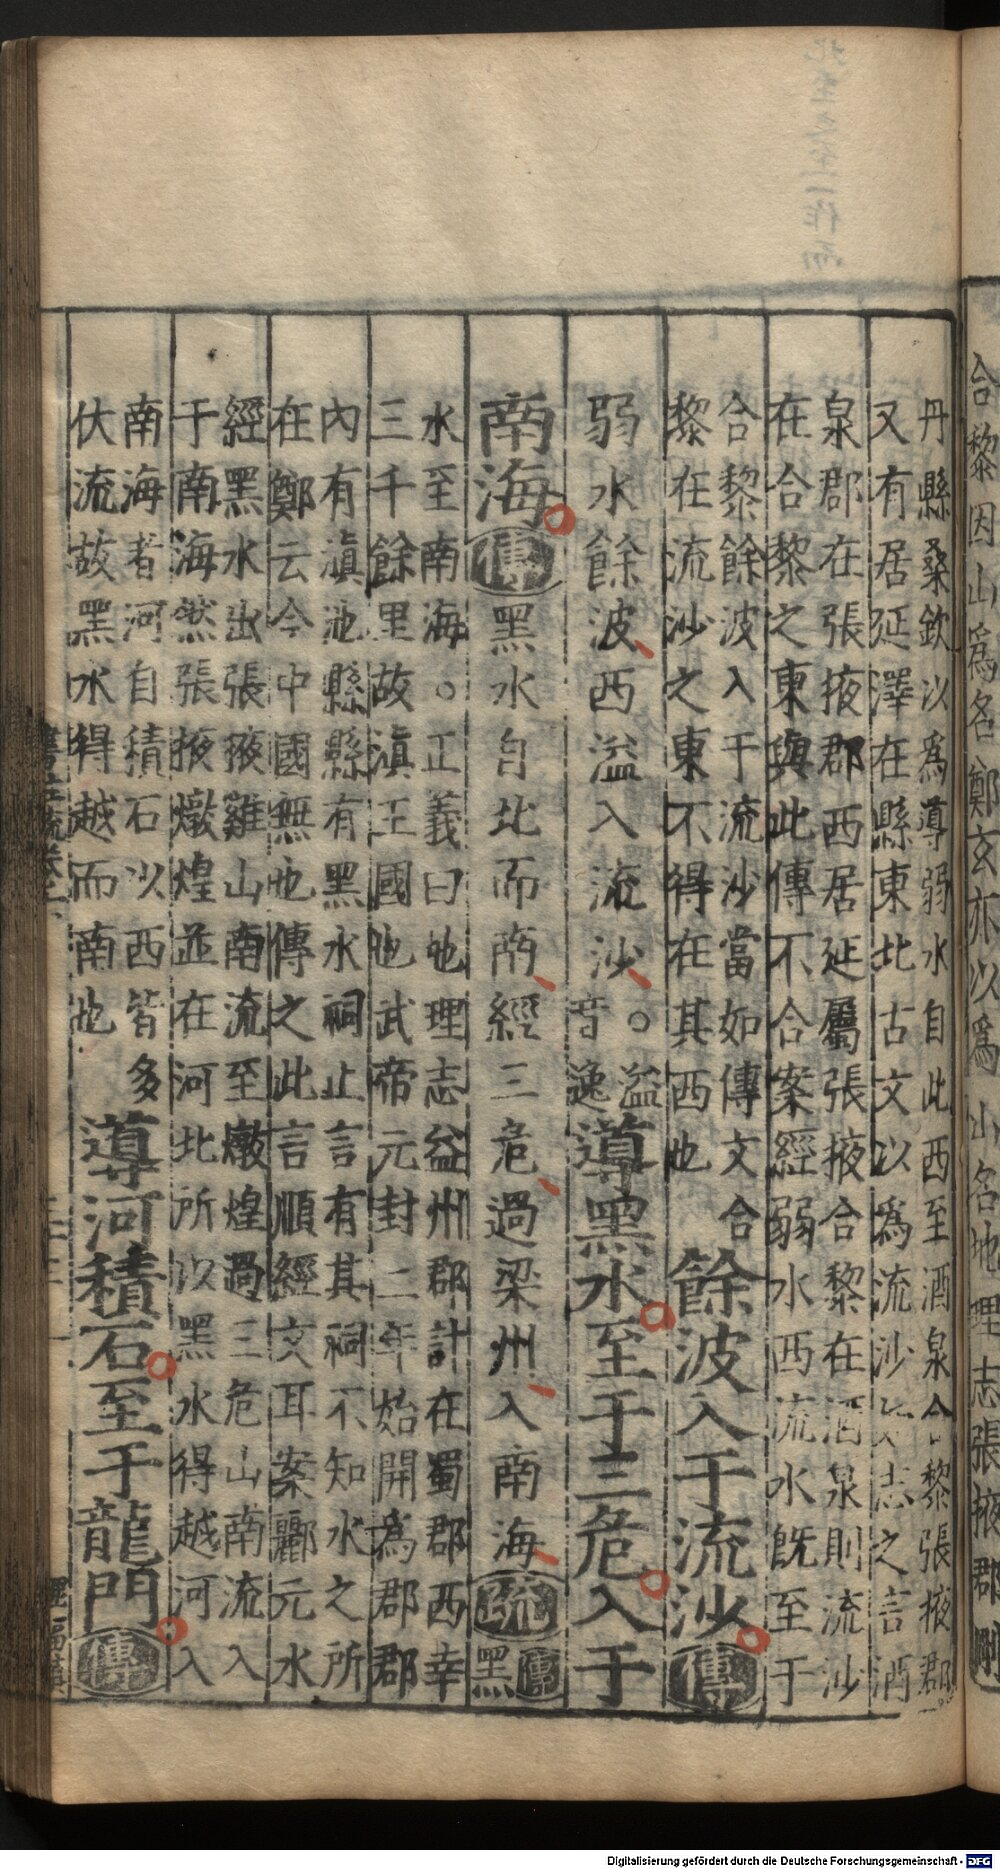 丹縣桑欽以爲導弱水自此西至酒泉合黎張掖郡
又有居延澤在縣東北古文以爲流沙如志之言酒
泉郡在張掖郡西居延屬張掖合黎在酒泉則流沙
在合黎之東與此傳不合案經弱水西流水旣至于
合黎餘波入于流沙當如傳文合
黎在流沙之東不得在其西也
餘波入于流沙傳
弱水餘波西溢入流沙○溢
音逸
導黑水至于三危入于
南海傳黑水自北而南經三危過梁州入南海疏傳黑
水至南海○正義曰地理志益州郡計在蜀郡西幸
三千餘里故滇王國也武帝元封二年始開爲郡郡
內有滇池縣縣有黑水祠止言有其祠不知水之所
在鄭云今中國無也傳之此言順經文耳案酈元水
經黑水出張掖雞山南流至燉煌過三危山南流入
于南海然張掖燉煌並在河北所以黑水得越河入
南海者河自積石以西皆多
伏流故黑水得越而南也
導河積石至于龍門傳
合黎因山爲名鄭玄亦以爲山名地理志張掖郡刪
Digitalisierung gefördert durch die Deutsche Forschungsgemeinschaft - DFG